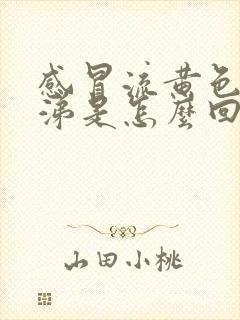 感冒流黄色
涕是怎麼回
山田小桃